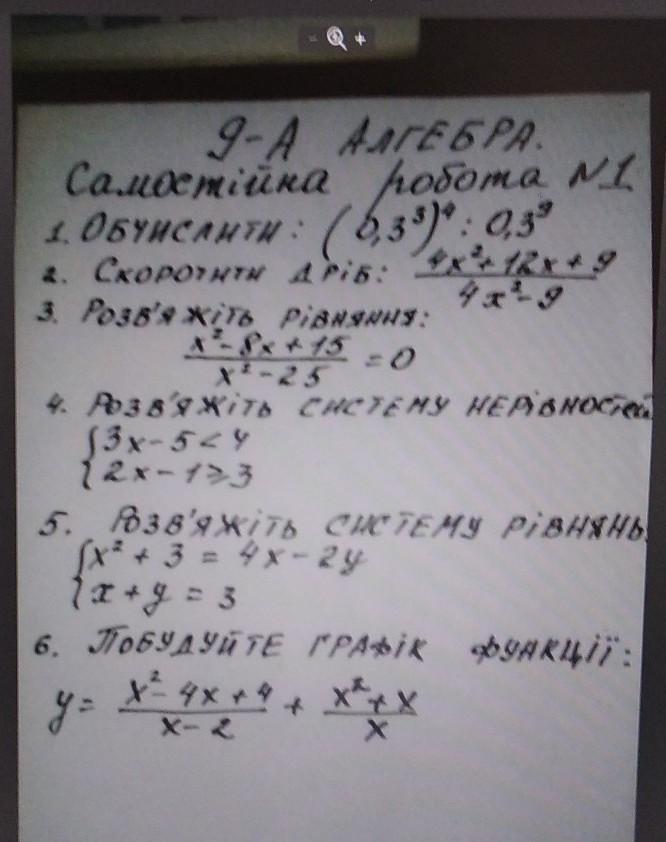 9-А АЛГЕБРА.
Самостійна робота N1
1. Обчислити: (0,3³)⁴ : 0,3⁹
2. Скоротити дріб: (4x²+12x+9)/(4x²-9)
3. Розв'яжіть рівняння:
(x²-8x+15)/(x²-25) = 0
4. Розв'яжіть систему нерівностей
{3x-5<4
{2x-1≥3
5. Розв'яжіть систему рівнянь.
{x²+3=4x-2y
{x+y=3
6. Побудуйте графік функції:
y= (x²-4x+4)/(x-2) + (x²+x)/x